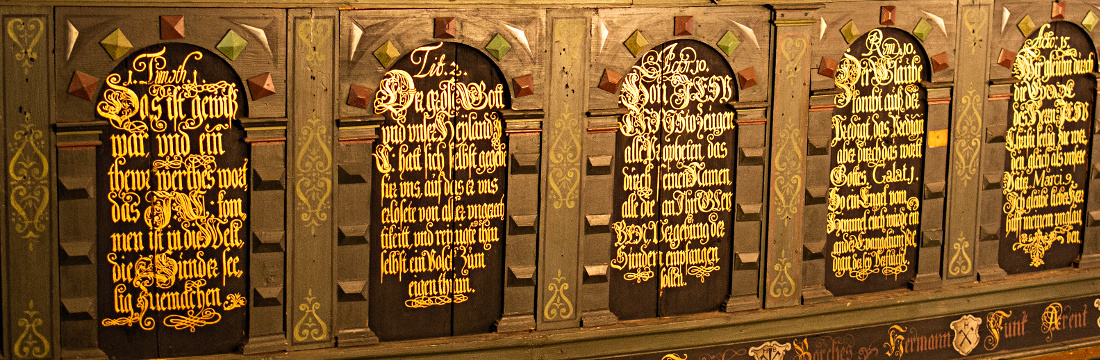 1. Timoth 1.
Das ist gewiß
war und ein
thewr werthes wort
das IESUS kom
men ist in die Welt,
die Sünder see,
lig zuemachen
Tit. 2.
Der große Gott
vnd vnser Heylandt
hatt sich selbst gegebē
für vns, auf das er vns
erlösete von aller vngerech
tikeitt vnd reinigte ihm
selbst ein Volck zum
eigenthum.
Actor. 10.
Von IESU
CHRISTO zeugen
alle Propheten das
durch seinen Namen
alle die an Ihn GLEV
BEN Vergebung der
Sünden empfangen
sollen.
Rom 10.
Der Glaube
kombt auß der
Predigt das Predigen
aber durch das wortt
Gottes, Galat. 1.
So ein Engel vom
Himmel euch würde ein
ander Evangelium
Acto. 15.
Wir glauben durch
die GNADE
des Herrn IESU
Christi selig zu wer
den gleich als vnsere
Väter Marci 9.
Ich glaube lieber Herr
hilff meinem vnglau
ben.
Borches Hermann Funk Arent